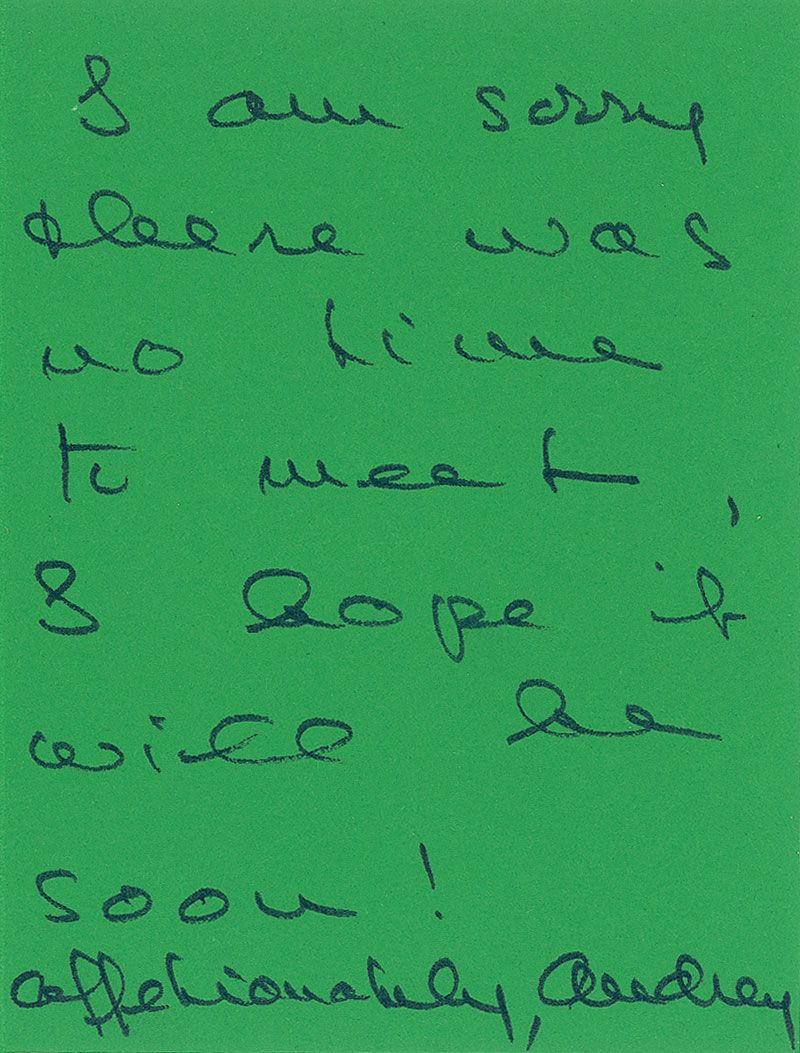 I am sorry
there was
no time
to meet,
I hope it
will be
soon!
affectionately, Audrey